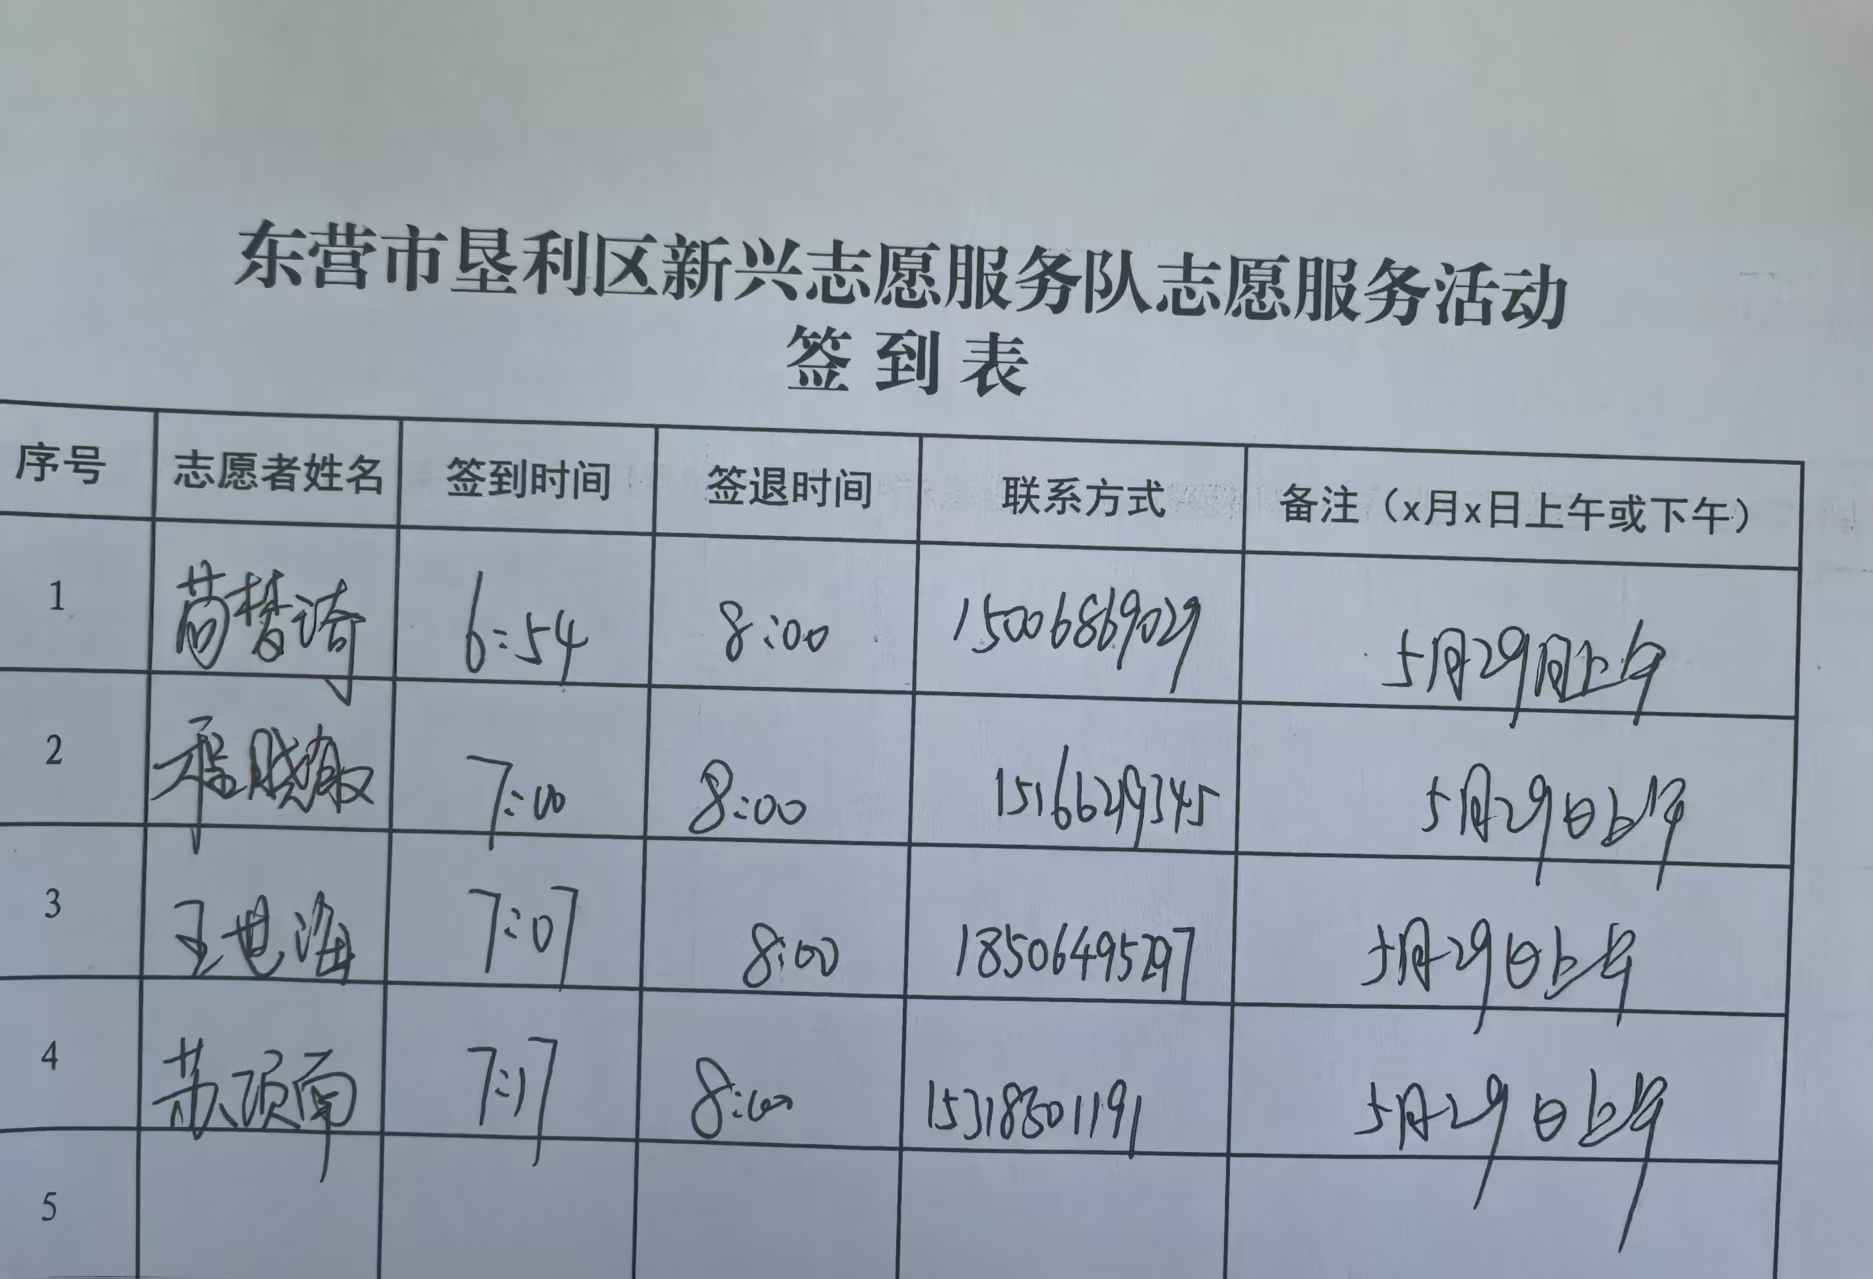 东营市垦利区新兴志愿服务队志愿服务活动
签到表
序号 志愿者姓名 签到时间 签退时间 联系方式 备注（x月x日上午或下午）
1 苟梦琦 6:54 8:00 15006869029 5月29日上午
2 程晓敏 7:00 8:00 15166249345 5月29日上午
3 王世海 7:07 8:00 18506495297 5月29日上午
4 苏 7:17 8:00 15318301191 5月29日上午
5